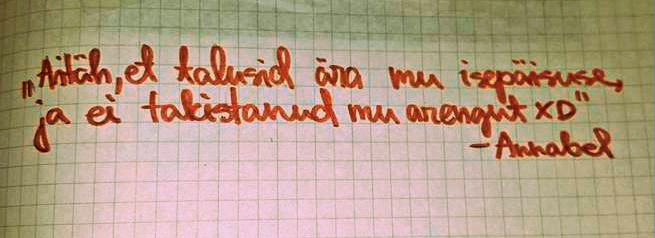 „Aitäh, et talusid ära mu isepäisuse,
ja ei takistanud mu arengut XD"
- Annabel